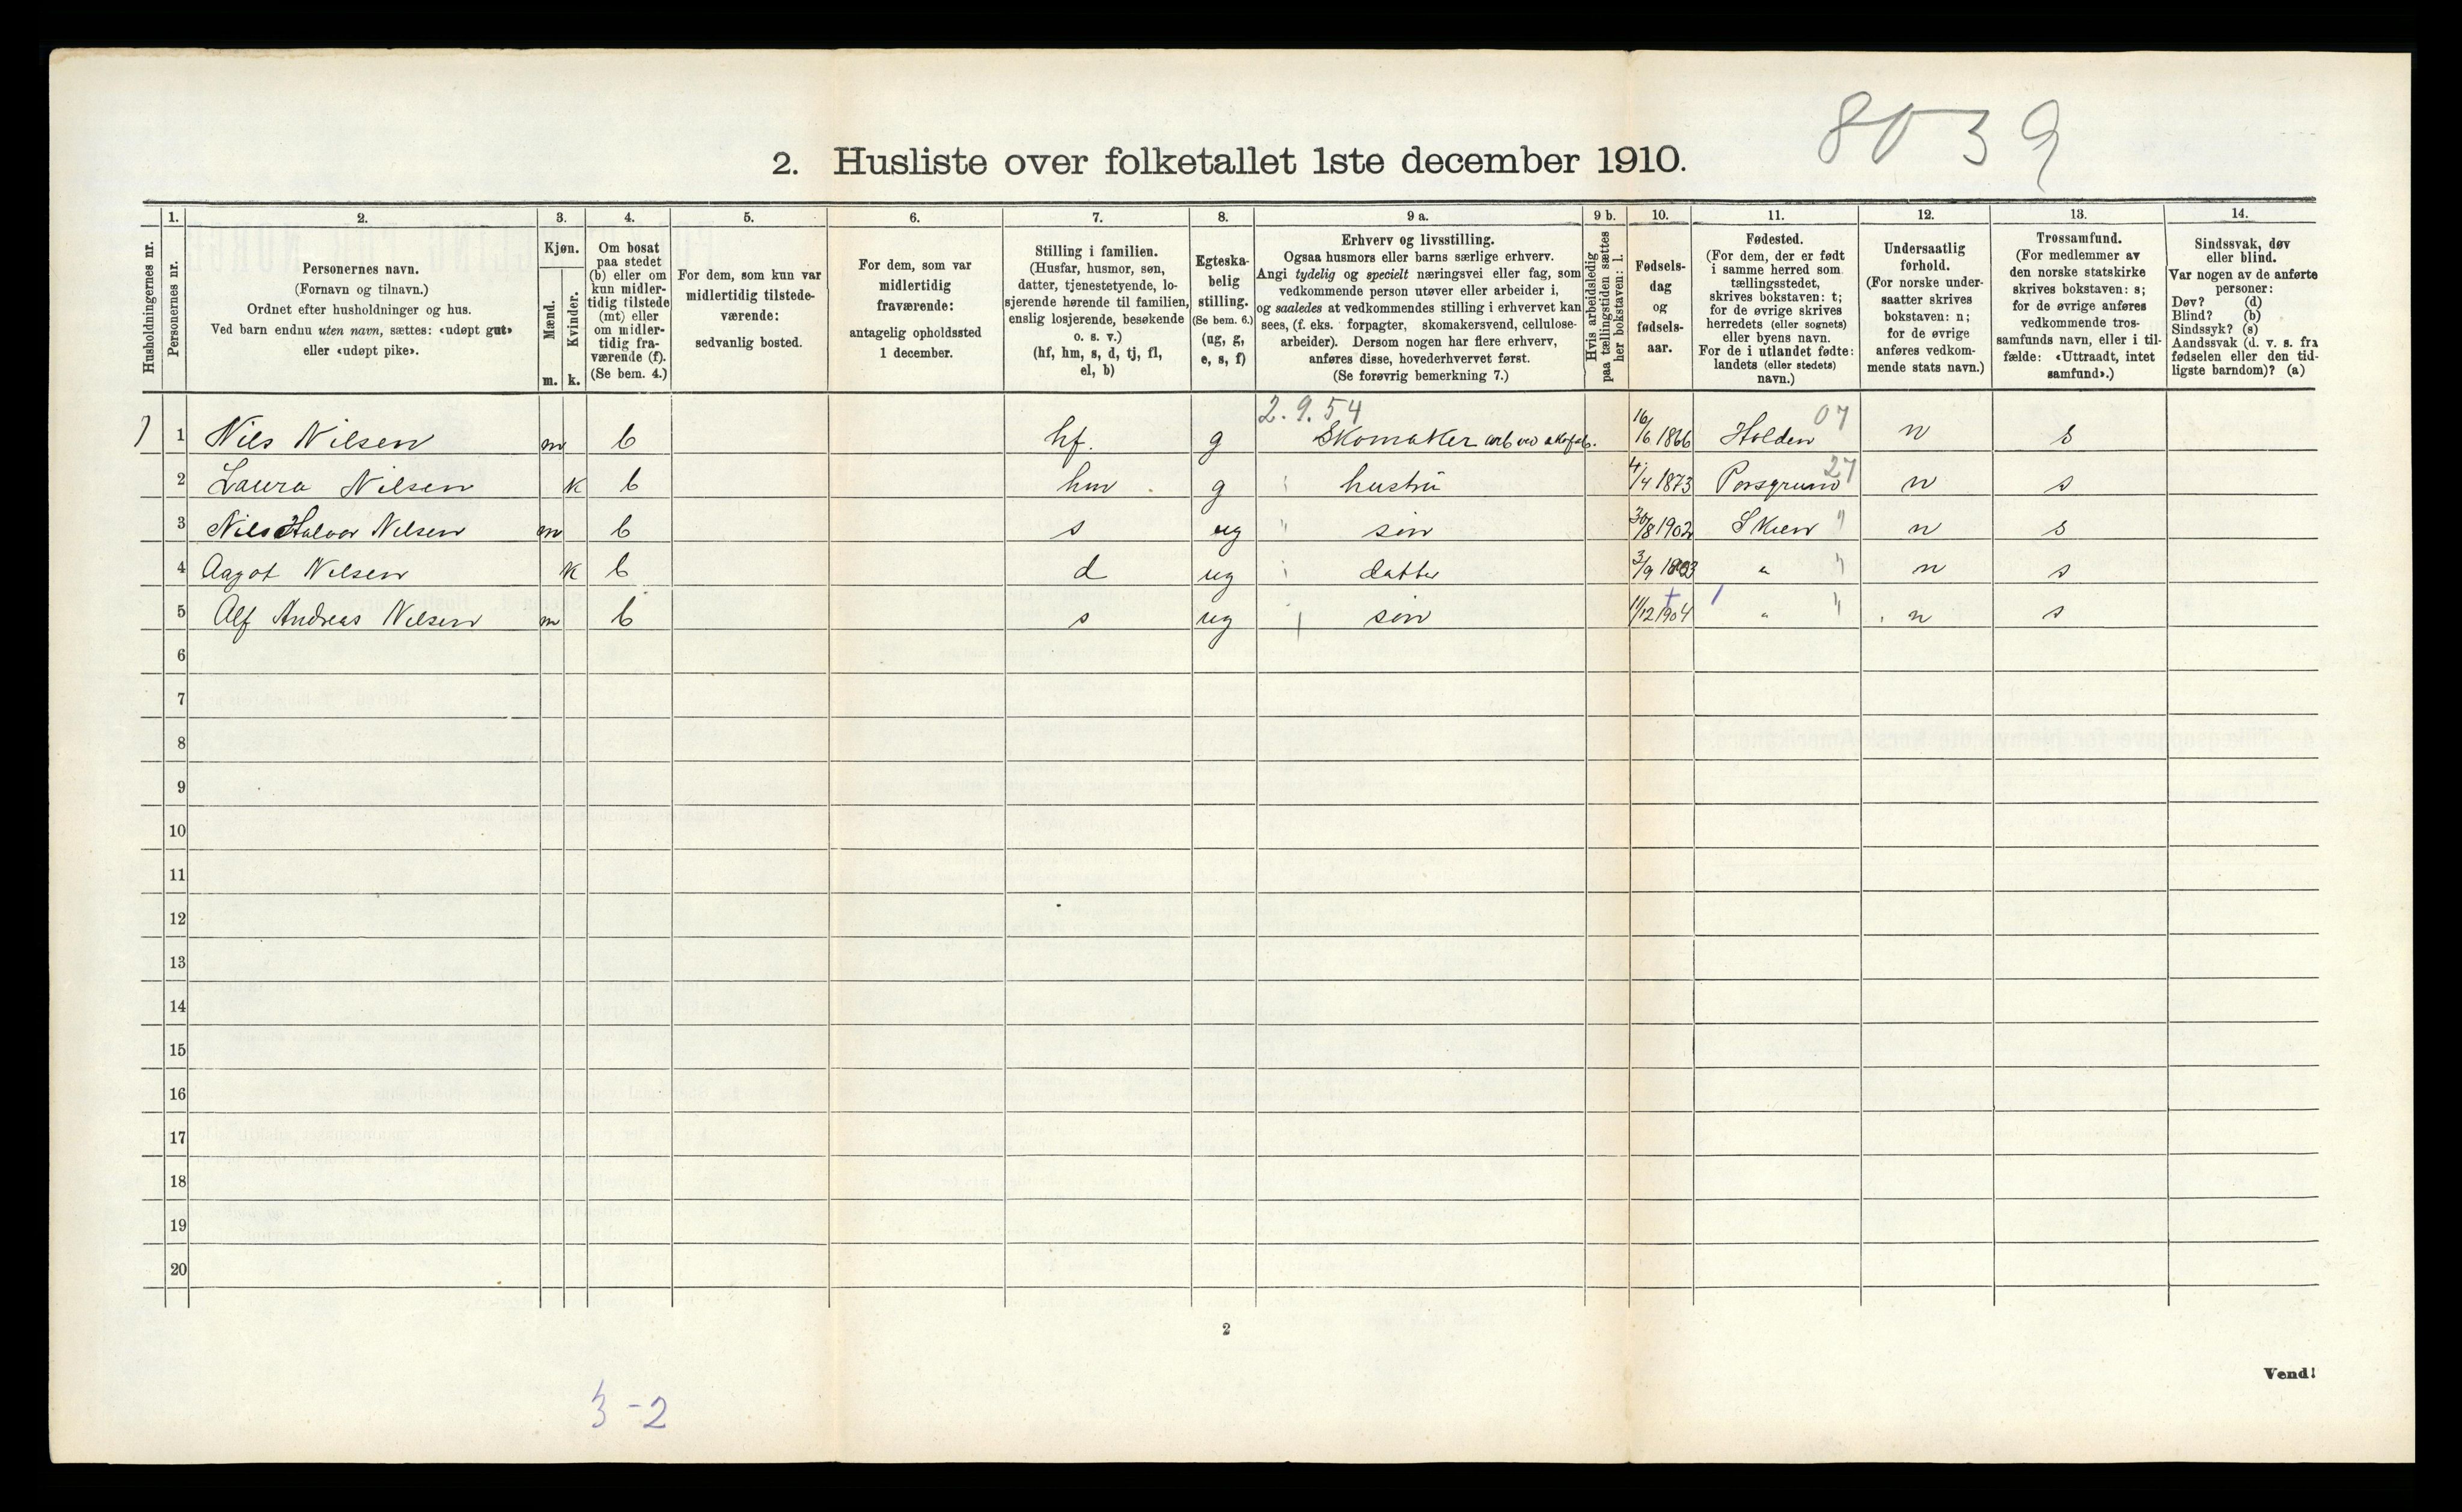 8039
2. Husliste over folketallet 1ste december 1910.
1. 2. 3. 4. 5. 6. 7. 8. 9 a. 9 b. 10. 11. 12. 13. 14.
Husholdningernes nr.
Personernes nr.
Personernes navn.
(Fornavn og tilnavn.)
Ordnet efter husholdninger og hus.
Ved barn endnu uten navn, sættes: «udøpt gut»
eller «udøpt pike».
Kjøn.
Mænd.
Kvinder.
m. k.
Om bosat
paa stedet
(b) eller om
kun midler-
tidig tilstede
(mt) eller
om midler-
tidig fra-
værende (f).
(Se bem. 4.)
For dem, som kun var
midlertidig tilstede-
værende:
sedvanlig bosted.
For dem, som var
midlertidig
fraværende:
antagelig opholdssted
1 december.
Stilling i familien.
(Husfar, husmor, søn,
datter, tjenestetyende, lo-
sjerende hørende til familien,
enslig losjerende, besøkende
o. s. v.)
(hf, hm, s, d, tj, fl,
el, b)
Egteska-
belig
stilling.
(Se bem. 6.)
(ug, g,
e, s, f)
Erhverv og livsstilling.
Ogsaa husmors eller barns særlige erhverv.
Angi tydelig og specielt næringsvei eller fag, som
vedkommende person utøver eller arbeider i,
og saaledes at vedkommendes stilling i erhvervet kan
sees, (f. eks. forpagter, skomakersvend, cellulose-
arbeider). Dersom nogen har flere erhverv,
anføres disse, hovederhvervet først.
(Se forøvrig bemerkning 7.)
Hvis arbeidsledig
paa tællingstiden sættes
her bokstaven: l.
Fødsels-
dag
og
fødsels-
aar.
Fødested.
(For dem, der er født
i samme herred som
tællingsstedet,
skrives bokstaven: t;
for de øvrige skrives
herredets (eller sognets)
eller byens navn.
For de i utlandet fødte:
landets (eller stedets)
navn.)
Undersaatlig
forhold.
(For norske under-
saatter skrives
bokstaven: n;
for de øvrige
anføres vedkom-
mende stats navn.)
Trossamfund.
(For medlemmer av
den norske statskirke
skrives bokstaven: s;
for de øvrige anføres
vedkommende tros-
samfunds navn, eller i til-
fælde: «Uttraadt, intet
samfund».)
Sindssvak, døv
eller blind.
Var nogen av de anførte
personer:
Døv? (d)
Blind? (b)
Sindssyk? (s)
Aandssvak (d. v. s. fra
fødselen eller den tid-
ligste barndom)? (a)
2.9.54
1 Nils Nilsen m b hf. g Skomaker arb ved skofab. 16/6 1866 Holden 07 n s
2 Laura Nilsen k b hm g hustru 4/4 1873 Porsgrund 27 n s
3 Nils Halvor Nilsen m b s ug " søn 30/8 1902 Skien " n s
4 Aagot Nilsen k b d ug datter 3/9 1903 " " n s
5 Alf Andreas Nilsen m b s ug søn 11/12 1904 " " n s
6
7
8
9
10
11
12
13
14
15
16
17
18
19
20
2
Vend!
3-2